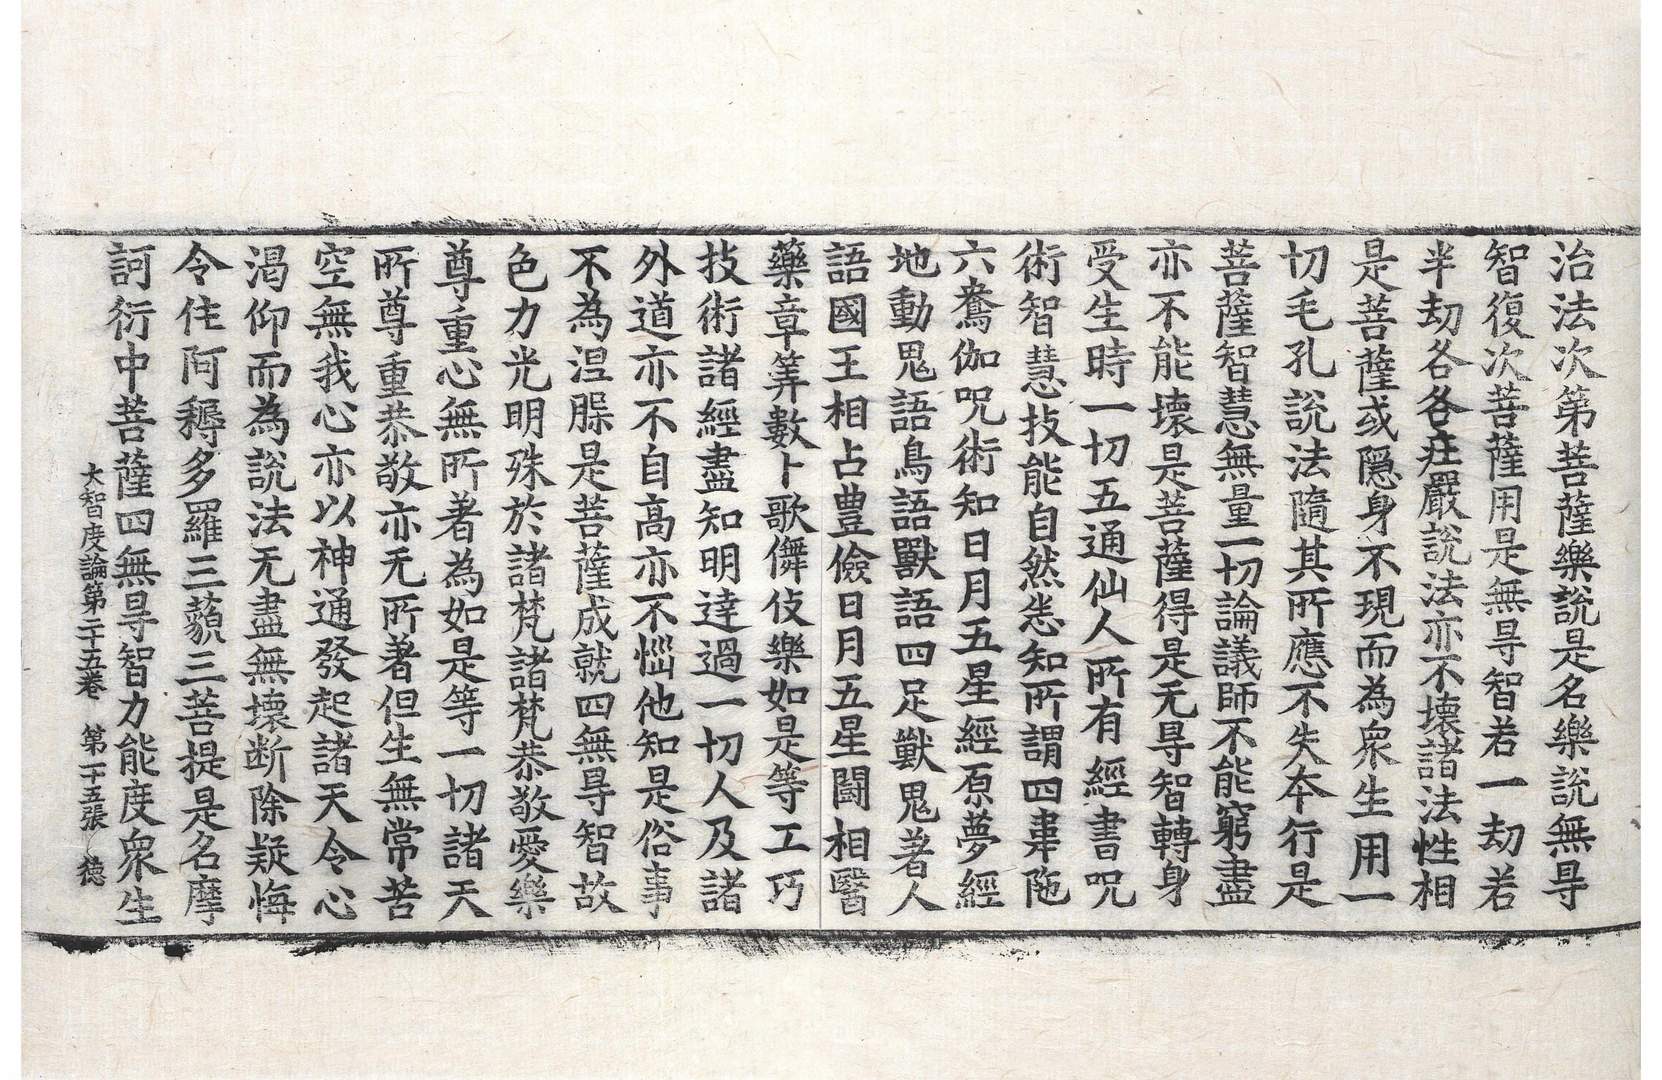 治法次第菩薩樂說是名樂說無㝵
智復次菩薩用是無㝵智若一劫若
半劫各各莊嚴說法亦不壞諸法性相
是菩薩或隱身不現而為衆生用一
切毛孔說法隨其所應不失夲行是
菩薩智慧無量一切論議師不能窮盡
亦不能壞是菩薩得是无㝵智轉身
受生時一切五通仙人所有經書呪
術智慧技能自然悉知所謂四韋陁
六鴦伽呪術知日月五星經原夢經
地動鬼語鳥語獸語四足獸鬼著人
語國王相占豊儉日月五星鬪相醫
藥章筭數卜歌儛伎樂如是等工巧
技術諸經盡知明達過一切人及諸
外道亦不自高亦不惱他知是俗事
不為涅槃是菩薩成就四無㝵智故
色力光明殊於諸梵諸梵恭敬愛樂
尊重心無所著為如是等一切諸天
所尊重恭敬亦无所著但生無常苦
空無我心亦以神通發起諸天令心
渴仰而為說法无盡無壞断除疑悔
令住阿耨多羅三藐三菩提是名摩
訶衍中菩薩四無㝵智力能度衆生
大智度論第二十五卷　第二十五張　德